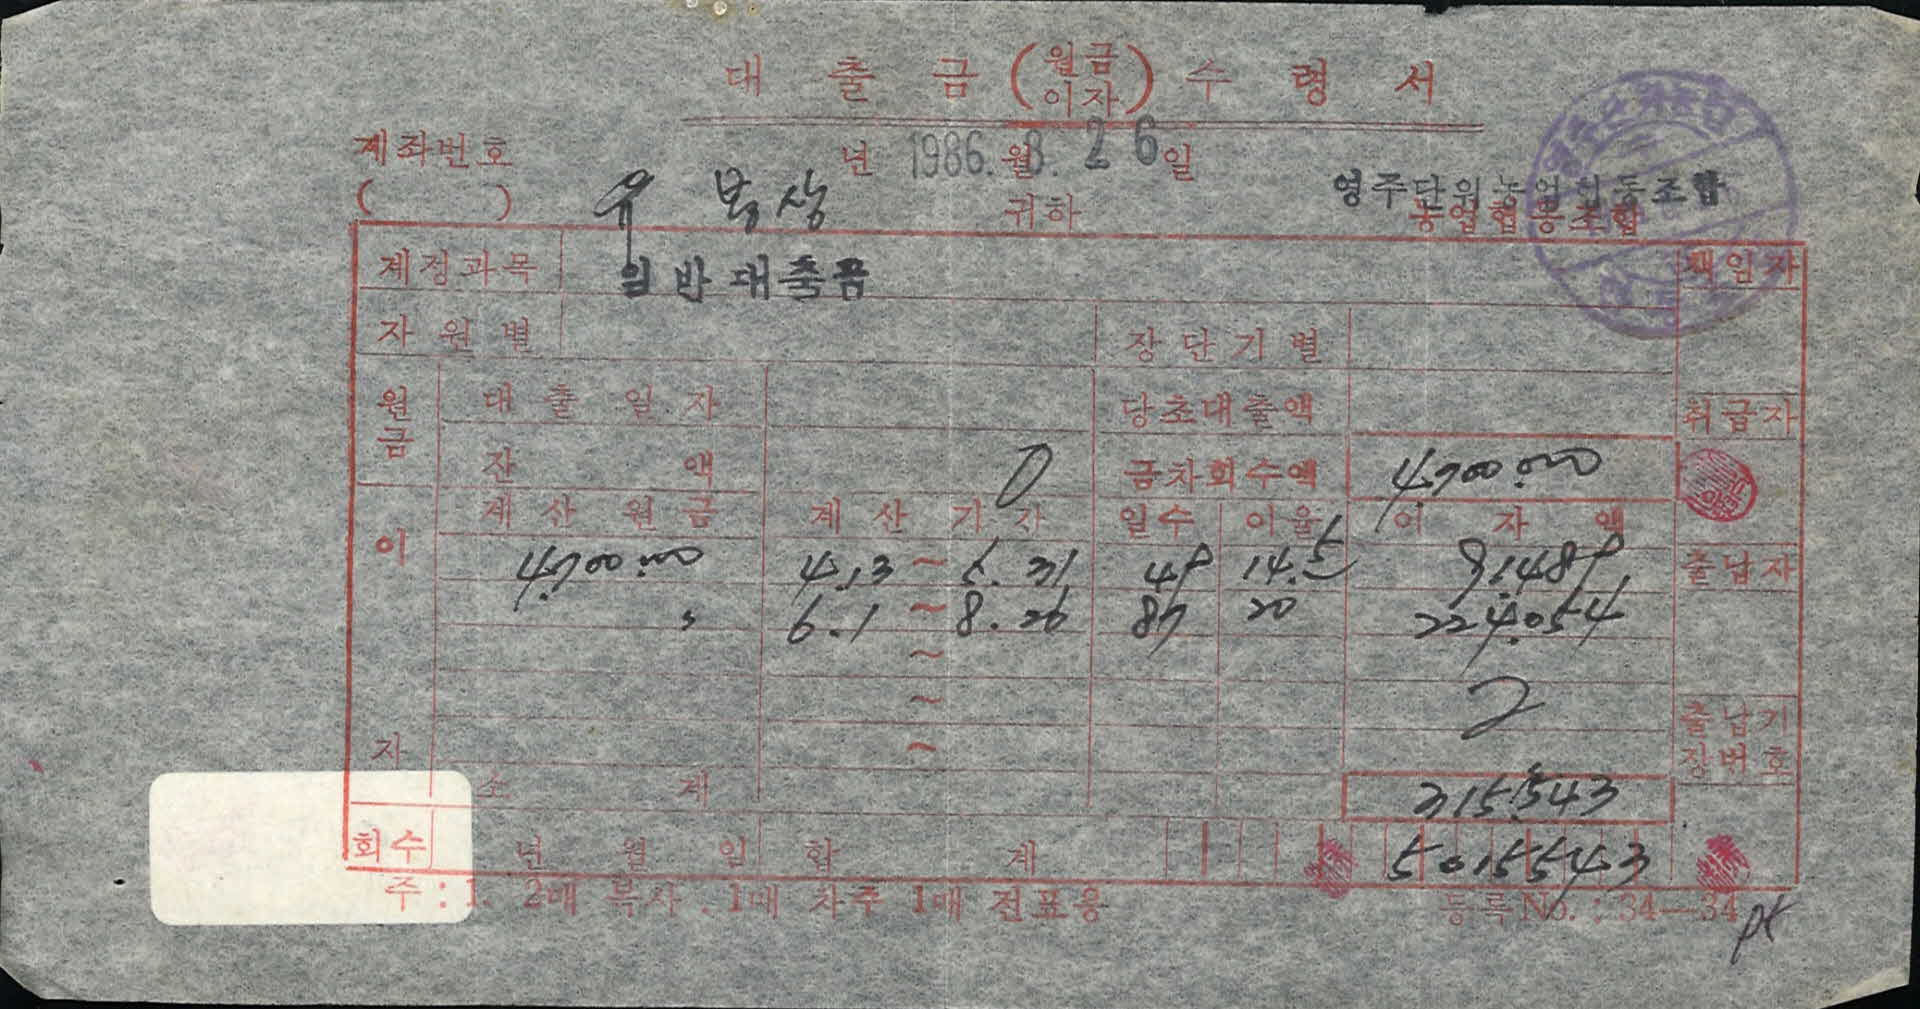 대 출 금 (원금 이자) 수 령 서
계좌번호
( )
년 1986. 월 8. 26 일
유 복상 귀하
영주단위농업협동조합
농업협동조합
계정과목 일반대출금 책임자
자 원 별 장 단 기 별
원금 대 출 일 자 당초대출액 취급자
잔 액 0 금차회수액 4,700,000
이 자 계 산 원 금 계 산 기 간 일수 이율 이 자 액
4,700,000 4.13 ~ 5.31 49 14.5 91,489 출납자
〃 6.1 ~ 8.26 87 20 224,054
~
~ 출납기장번호
~
소 계 315,543
회수 년 월 일 합 계 5015543
주 : 1. 2매 복사. 1매 차주 1매 전표용 등록No. : 34—34